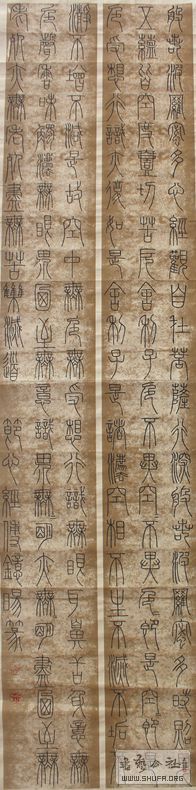 般若波羅蜜多心經觀自在菩薩行深般若波羅蜜多時照見
五蘊皆空度壹切苦厄舍利子色不異空不異色即是空即是
色受想行識亦復如是舍利子是諸法空相不生不滅不垢不
淨不增不減是故空中無色無受想行識無眼耳鼻舌身意無
色聲香味觸法無眼界乃至無意識界無無明亦無無明盡乃至無
老死亦無老死盡無苦集滅道 節心經傅鏡暘篆
WWW.SHUFA.ORG